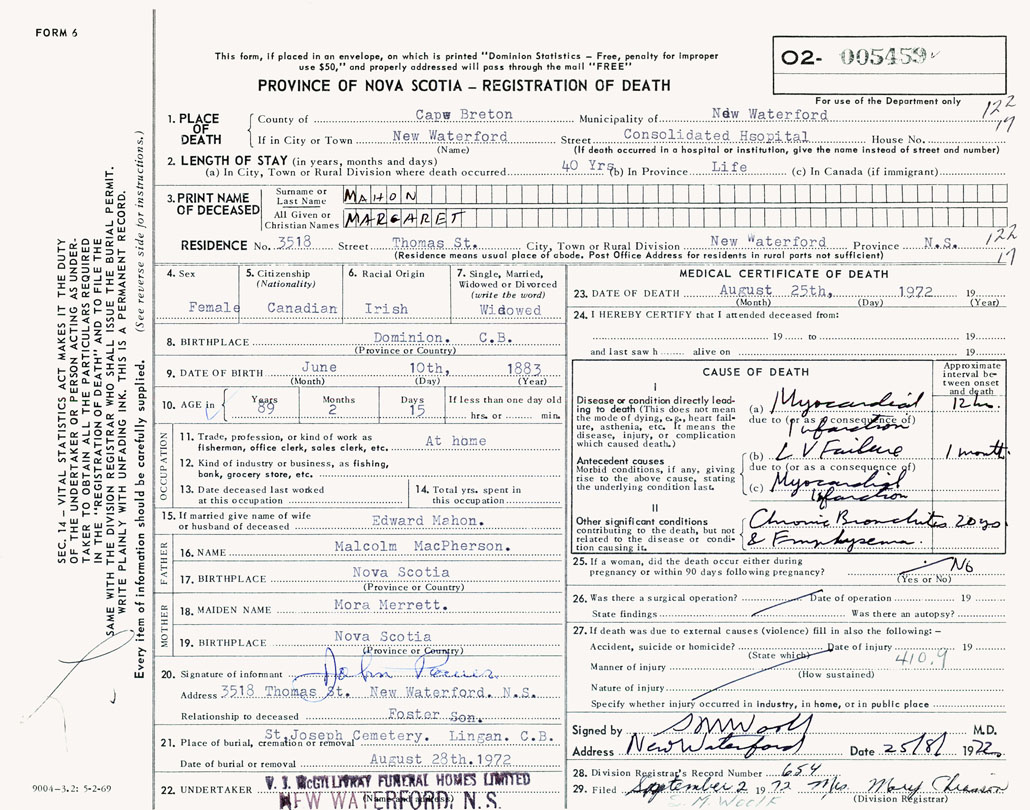 FORM 6
This form, if placed in an envelope, on which is printed "Dominion Statistics – Free, penalty for improper
use $50," and properly addressed will pass through the mail "FREE"
O2- 005459
For use of the Department only
PROVINCE OF NOVA SCOTIA – REGISTRATION OF DEATH
122
17
1. PLACE OF DEATH
County of Capw Breton Municipality of New Waterford
If in City or Town New Waterford Street Consolidated Hsopital House No.
(Name) (If death occurred in a hospital or institution, give the name instead of street and number)
2. LENGTH OF STAY (in years, months and days)
(a) In City, Town or Rural Division where death occurred 40 Yrs (b) In Province Life (c) In Canada (if immigrant)
3. PRINT NAME OF DECEASED
Surname or Last Name MAHON
All Given or Christian Names MARGARET
RESIDENCE No. 3518 Street Thomas St. City, Town or Rural Division New Waterford Province N.S.
(Residence means usual place of abode. Post Office Address for residents in rural parts not sufficient)
122
17
4. Sex
Female
5. Citizenship (Nationality)
Canadian
6. Racial Origin
Irish
7. Single, Married, Widowed or Divorced (write the word)
Widowed
8. BIRTHPLACE Dominion. C.B.
(Province or Country)
9. DATE OF BIRTH June 10th, 1883
(Month) (Day) (Year)
10. AGE in Years 89 Months 2 Days 15 If less than one day old
hrs. or min.
OCCUPATION
11. Trade, profession, or kind of work as
fisherman, office clerk, sales clerk, etc. At home
12. Kind of industry or business, as fishing,
bank, grocery store, etc.
13. Date deceased last worked
at this occupation
14. Total yrs. spent in
this occupation
15. If married give name of wife
or husband of deceased Edward Mahon.
FATHER
16. NAME Malcolm MacPherson.
17. BIRTHPLACE Nova Scotia
(Province or Country)
MOTHER
18. MAIDEN NAME Mora Merrett.
19. BIRTHPLACE Nova Scotia
(Province or Country)
20. Signature of informant John
Address 3518 Thomas St. New Waterford. N.S.
Relationship to deceased Foster Son.
21. Place of burial, cremation or removal St.Joseph Cemetery. Lingan. C.B.
Date of burial or removal August 28th.1972
22. UNDERTAKER V. J. McGILLIVRAY FUNERAL HOMES LIMITED
(Name and address)
NEW WATERFORD, N.S.
MEDICAL CERTIFICATE OF DEATH
23. DATE OF DEATH August 25th, 1972 19
(Month) (Day) (Year)
24. I HEREBY CERTIFY that I attended deceased from:
19 to 19
and last saw h alive on 19
CAUSE OF DEATH
Approximate interval between onset and death
I
Disease or condition directly leading to death (This does not mean the mode of dying, e.g., heart failure, asthenia, etc. It means the disease, injury, or complication which caused death.)
(a) Myocardial Infarction 12 hr.
due to (or as a consequence of)
Antecedent causes
Morbid conditions, if any, giving rise to the above cause, stating the underlying condition last.
(b) L V Failure 1 month
due to (or as a consequence of)
(c) Myocardial Infarction
II
Other significant conditions
contributing to the death, but not related to the disease or condition causing it.
Chronic Bronchitis 20 yrs.
& Emphysema.
25. If a woman, did the death occur either during
pregnancy or within 90 days following pregnancy? No
(Yes or No)
26. Was there a surgical operation? Date of operation 19
State findings Was there an autopsy?
27. If death was due to external causes (violence) fill in also the following: –
Accident, suicide or homicide? Date of injury 19
(State which)
410.9
Manner of injury
(How sustained)
Nature of injury
Specify whether injury occurred in industry, in home, or in public place
Signed by M.D.
Address New Waterford Date 25/8/ 1972
28. Division Registrar's Record Number 654
29. Filed September 2 1972 Mrs. Mary
(Division Registrar)
SEC. 14 – VITAL STATISTICS ACT MAKES IT THE DUTY
OF THE UNDERTAKER OR PERSON ACTING AS UNDERTAKER
TO OBTAIN ALL THE PARTICULARS REQUIRED
IN THE "REGISTRATION OF DEATH" AND TO FILE THE
SAME WITH THE DIVISION REGISTRAR WHO SHALL ISSUE THE BURIAL PERMIT.
WRITE PLAINLY WITH UNFADING INK. THIS IS A PERMANENT RECORD.
Every item of information should be carefully supplied. (See reverse side for instructions.)
9004-3.2: 5-2-69